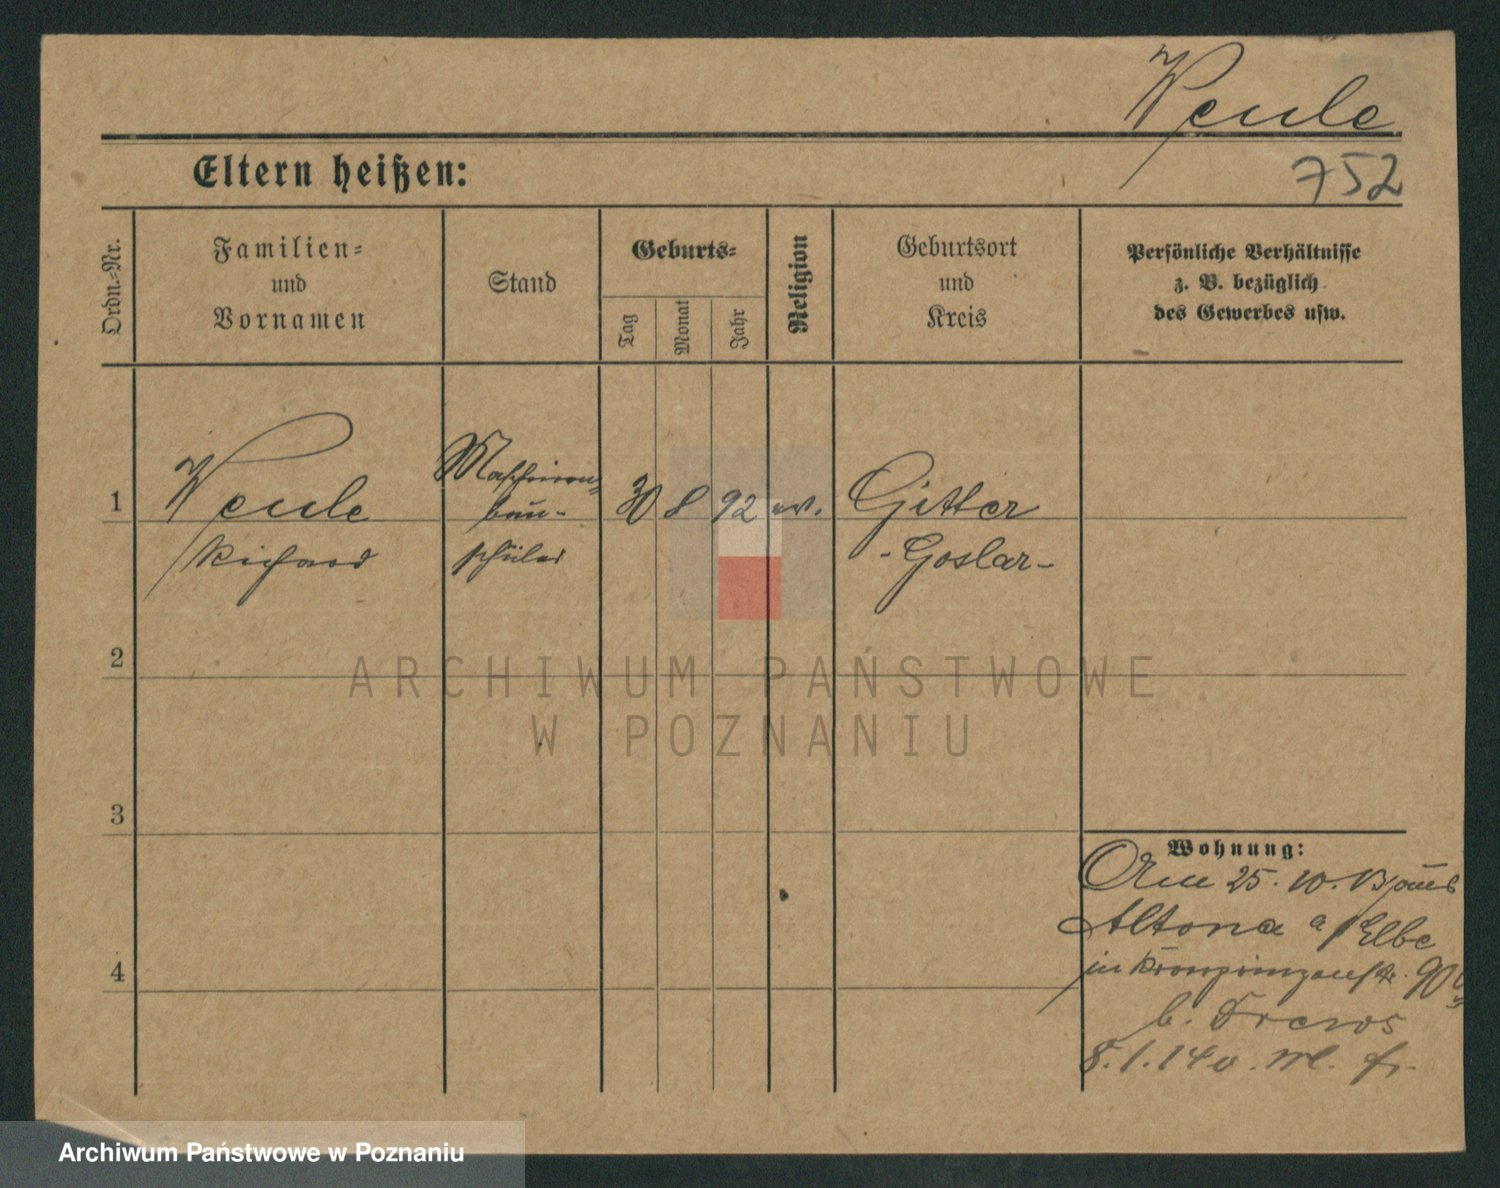 Weule
752
Eltern heißen:
Ordn.=Nr.
Familien=
und
Vornamen
Stand
Geburts=
Tag
Monat
Jahr
Religion
Geburtsort
und
Kreis
Persönliche Verhältnisse
z. B. bezüglich
des Gewerbes usw.
1
Weule
Richard
Maschinen=
bau-
schüler
30 8 92 ev.
Gitter
-Goslar-
2
3
4
Wohnung:
Am 25. 10. 13
Altona a/Elbe
in Kronprinzenstr. 90
b. Drews
8.1.14 v.
ARCHIWUM PAŃSTWOWE
W POZNANIU
Archiwum Państwowe w Poznaniu